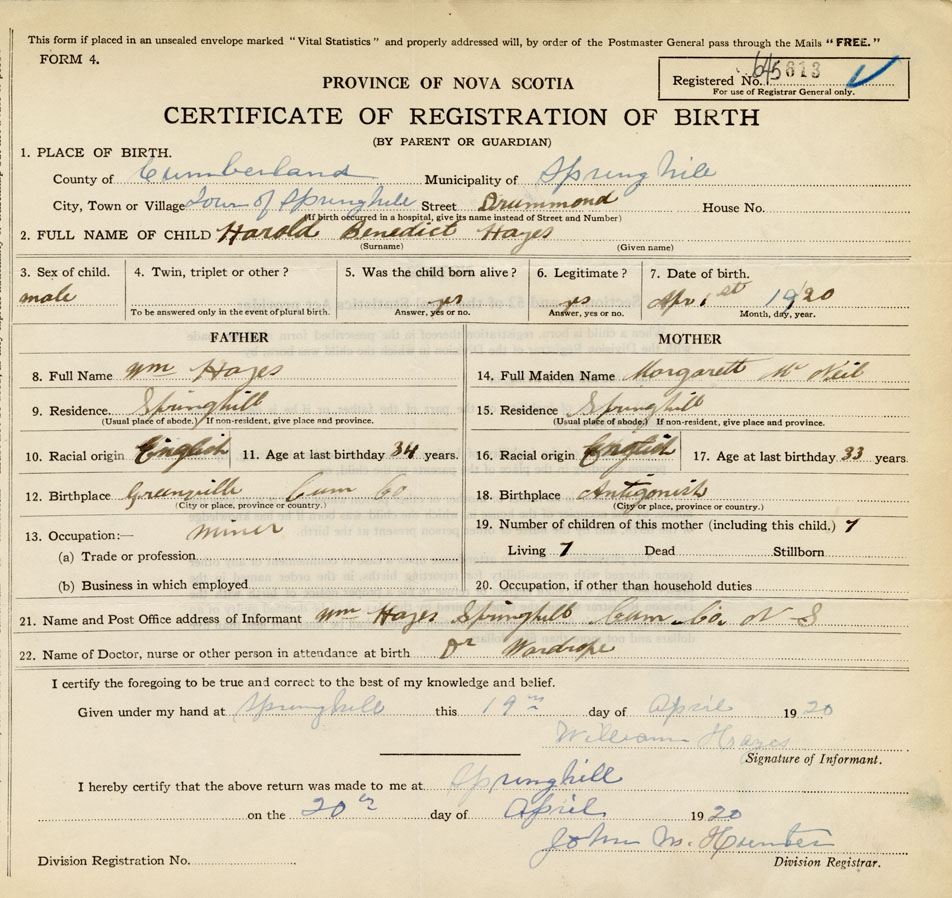 This form if placed in an unsealed envelope marked "Vital Statistics" and properly addressed will, by order of the Postmaster General pass through the Mails "FREE."
FORM 4.
Registered No. 645613
For use of Registrar General only.
PROVINCE OF NOVA SCOTIA
CERTIFICATE OF REGISTRATION OF BIRTH
(BY PARENT OR GUARDIAN)
1. PLACE OF BIRTH.
County of Cumberland Municipality of Springhill
City, Town or Village Town of Springhill Street Drummond House No.
(If birth occurred in a hospital, give its name instead of Street and Number)
2. FULL NAME OF CHILD Harold Benedict Hayes
(Surname) (Given name)
3. Sex of child. 4. Twin, triplet or other? 5. Was the child born alive? 6. Legitimate? 7. Date of birth.
male yes yes Apr 1st 1920
To be answered only in the event of plural birth. Answer, yes or no. Answer, yes or no. Month, day, year.
FATHER MOTHER
8. Full Name Wm Hayes 14. Full Maiden Name Margarett Mc Neil
9. Residence. Springhill 15. Residence Springhill
(Usual place of abode.) If non-resident, give place and province. (Usual place of abode.) If non-resident, give place and province.
10. Racial origin English 11. Age at last birthday 34 years. 16. Racial origin English 17. Age at last birthday 33 years.
12. Birthplace Greenville Cum Co 18. Birthplace Antigonish
(City or place, province or country.) (City or place, province or country.)
13. Occupation:— miner 19. Number of children of this mother (including this child,) 7
(a) Trade or profession Living 7 Dead Stillborn
(b) Business in which employed 20. Occupation, if other than household duties
21. Name and Post Office address of Informant Wm Hayes Springhill Cum. Co. N S
22. Name of Doctor, nurse or other person in attendance at birth Dr Wardrope
I certify the foregoing to be true and correct to the best of my knowledge and belief.
Given under my hand at Springhill this 19th day of April 1920
William Hayes
Signature of Informant.
I hereby certify that the above return was made to me at Springhill
on the 20th day of April 1920
John M. Hunter
Division Registration No. Division Registrar.